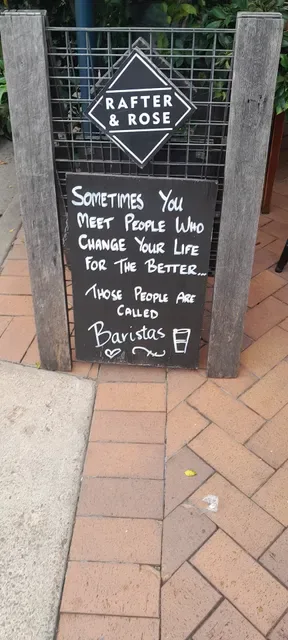 RAFTER
& ROSE
SOMETIMES YOU
MEET PEOPLE WHO
CHANGE YOUR LIFE
FOR THE BETTER...
THOSE PEOPLE ARE
CALLED
Baristas